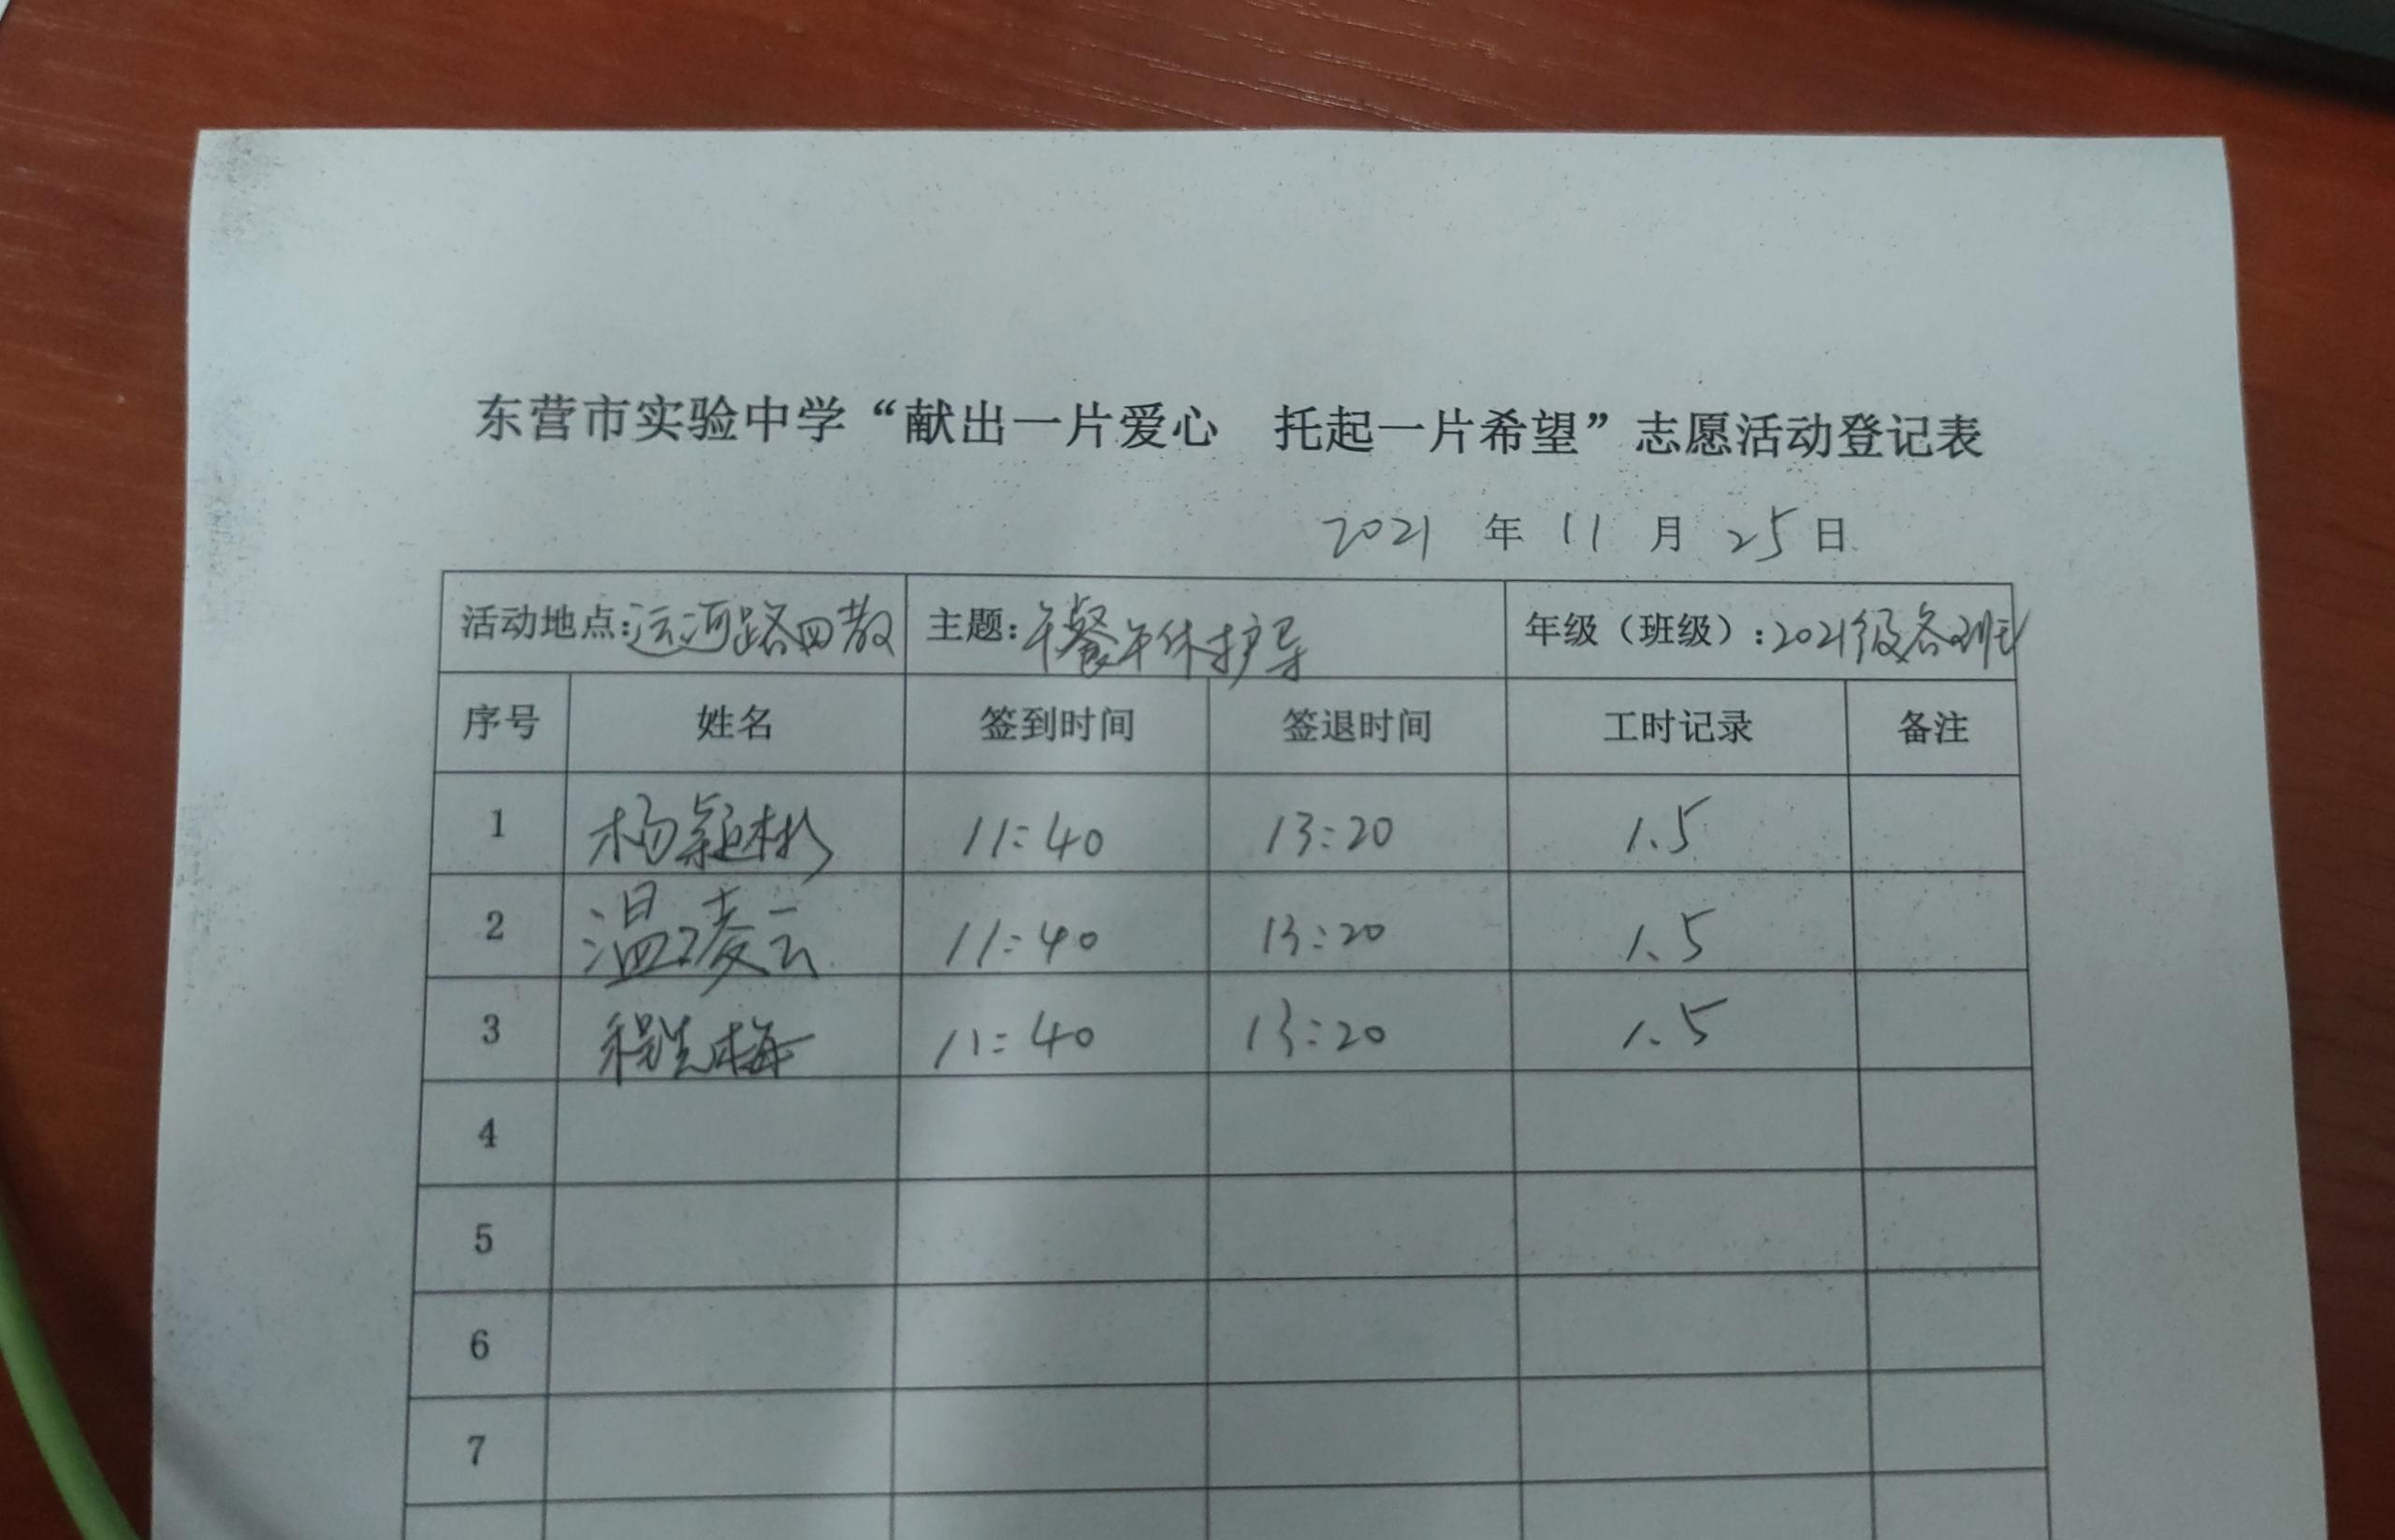 东营市实验中学“献出一片爱心　托起一片希望”志愿活动登记表
2021 年 11 月 25 日
活动地点：运河路四散 主题：午餐午休护导 年级（班级）：2021级各班
序号 姓名 签到时间 签退时间 工时记录 备注
1 杨颖彬 11:40 13:20 1.5
2 温凌云 11:40 13:20 1.5
3 程 梅 11:40 13:20 1.5
4
5
6
7